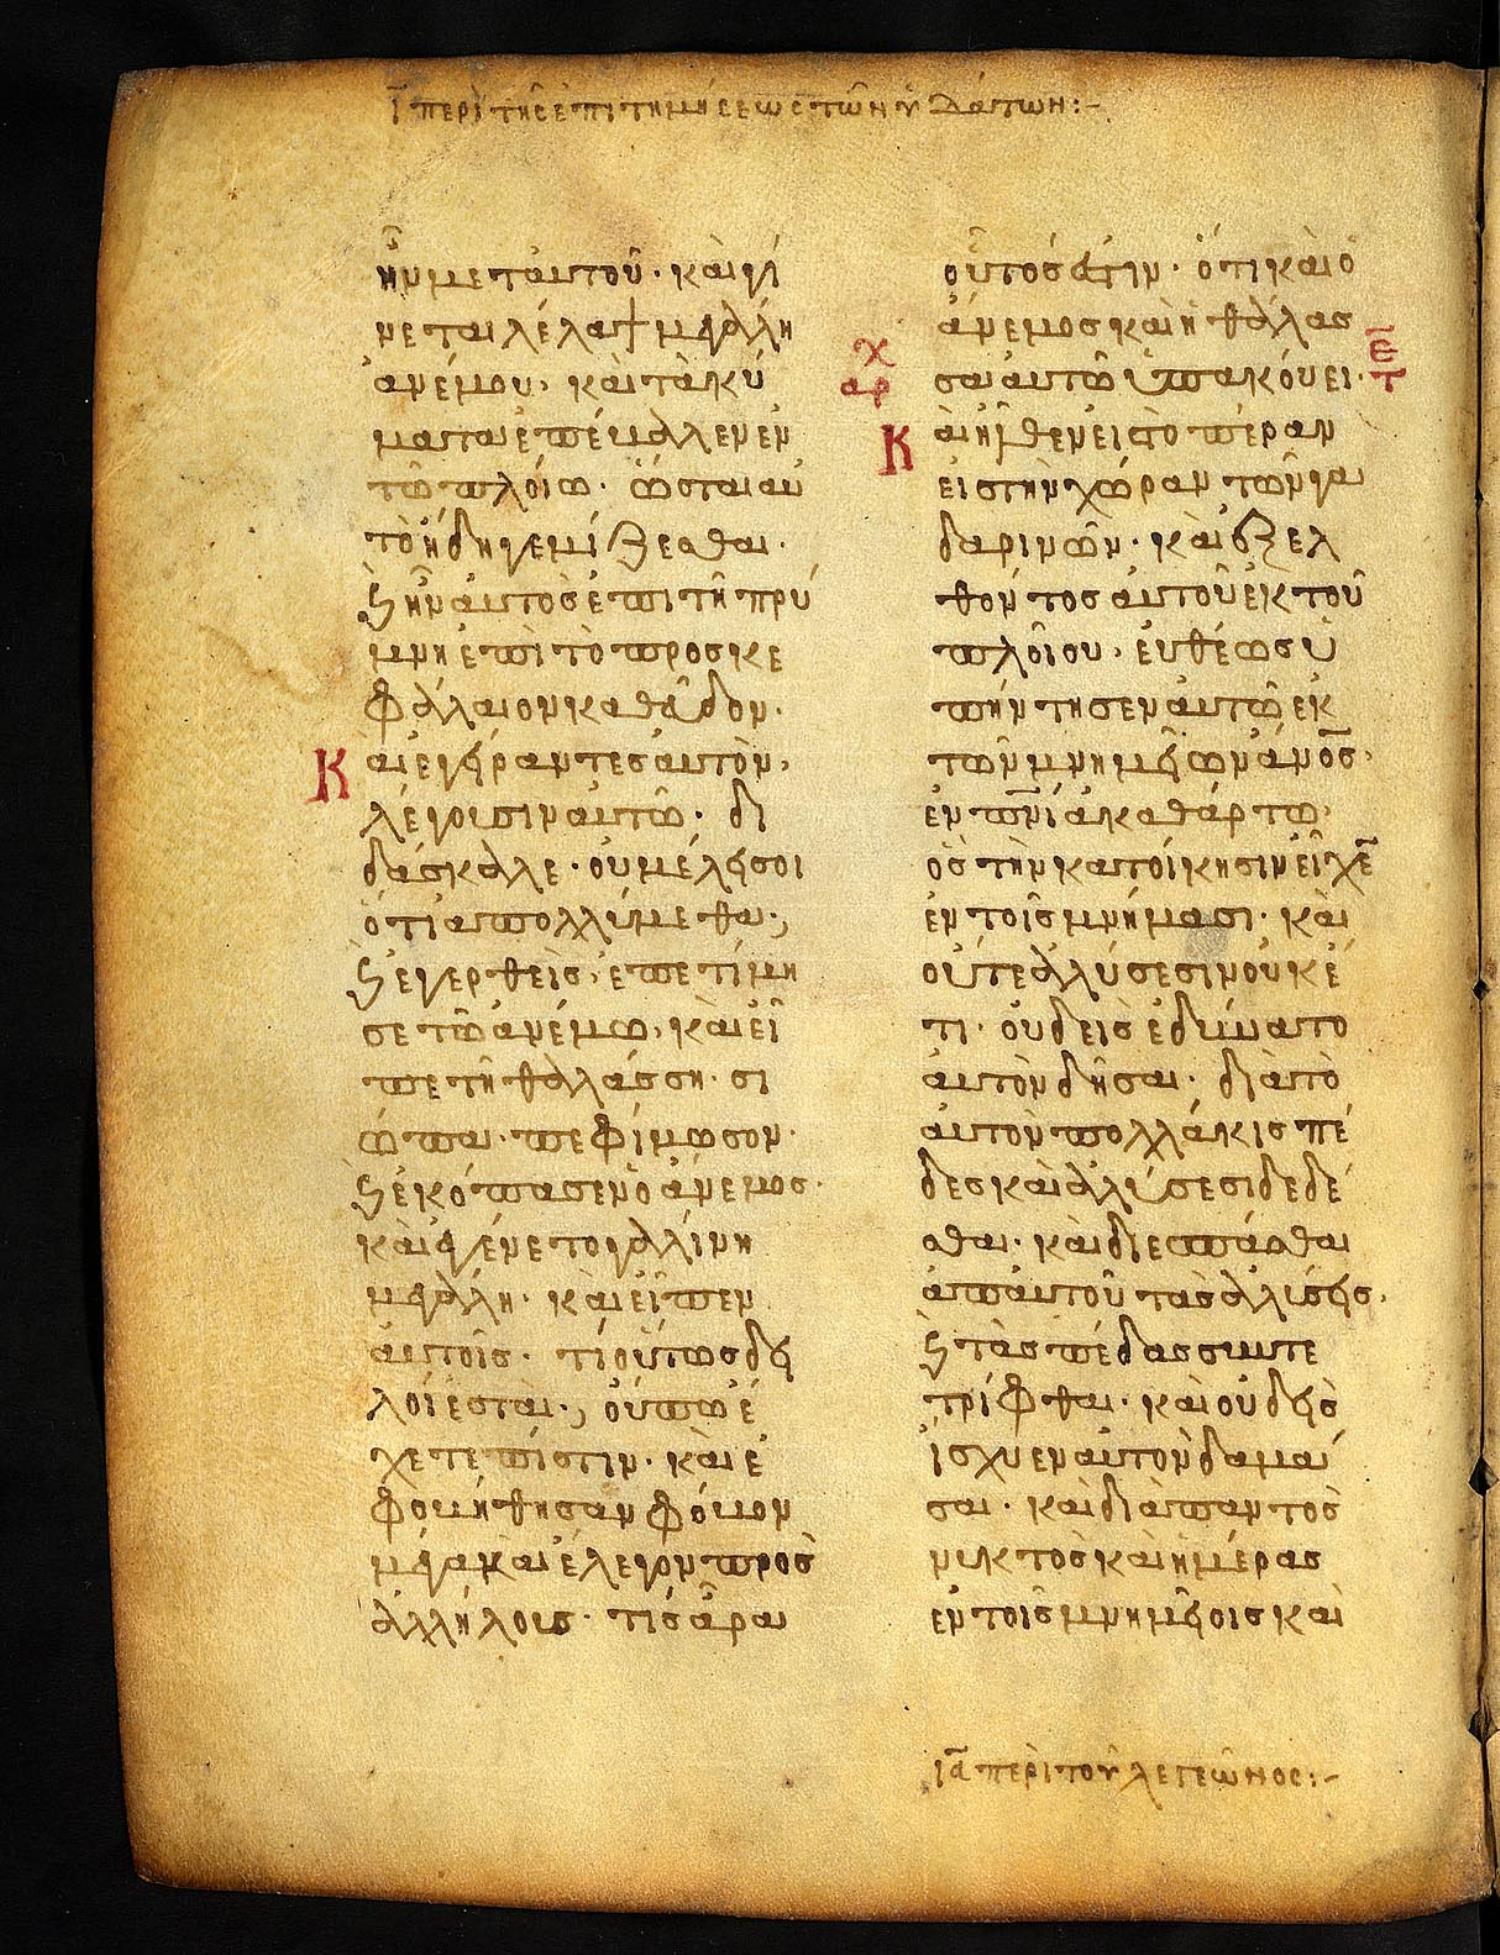 ῑ περὶ τῆς ἐπιτημήσεως τῶν ὑδάτων:–
ἦν μετ αυτοῦ· καὶ γί
νεται λέλαψ μεγάλη
ἀνέμου, καὶ τὰ κύ
ματα ἐπέβαλλεν ἐν
τῶ πλοίω· ὥσται αυ
τὸ ἤδη γεμίζεσθαι·
ϗ ἦν ἀυτὸσ ἐπι τῆ πρύ
μνη ἐπὶ τὸ προσκε
φάλαιον καθεῦδον·
Κ
αὶ εγείραντεσ αυτὸν,
λέγουσιν αυτῶ· δι
δάσκαλε· οὐ μέλει σοι
ὅτι απολλύμεθα·,
ϗ ἐγερθεὶσ, ἐπετίμη
σε τῶ ἀνέμω, καὶ εἶ
πε τῆ θαλάσση· σι
ώπα· πεφίμωσον·
ϗ ἐκόπασεν ὁ ἄνεμοσ·
καὶ ἐγένετο γαλλίνη
μεγάλη· καὶ εἶπεν
ἀυτοῖσ· τί οὕτωσ δει
λοί ἐσται·, οὔπω ἔ
χετε πίστιν· καὶ ἐ
φοβήθησαν φόβον
μέγαν καὶ ἔλεγον πρὸσ
ἀλλήλουσ· τίσ ἆρα
οὗτοσ ἐστιν· ὅτι καὶ ὁ
ἄνεμοσ και ἡ θάλασ
χ
αρ
σα αυτῶ ὑπακούει·
ε̄
τ
Κ
αι ἦλθεν εισ τὸ πέραν
εισ τὴν χώραν τῶν γα
δαρινῶν· καὶ ἐξελ
θόντοσ ἀυτοῦ ἐκ τοῦ
πλοίου, ἐυθέωσ ὑ
πήντησεν ἀυτῶ εκ
τῶν μνημείων ἀν̅ο̅σ̅,
ἐν π̅ν̅ι̅ ἀκαθάρτω,
ὃσ τὴν κατοίκησιν εἶχε̄
ἐν τοῖσ μνήμασι· καὶ
ουτε ἁλύσεσιν οὐκέ
τι· οὐδεὶσ ἐδύνατο
ἀυτὸν δῆσαι· διὰ τὸ
ἀυτὸν πολλάκισ πέ
δεσ καὶ ἁλύσεσι δεδέ
σθαι· καὶ διεσπάσθαι
ἀπ ἀυτοῦ τὰσ ἁλύσεισ,
ϗ τὰσ πέδασ συντε
τρίφθαι· καὶ οὐδεὶσ
ἴσχυεν αυτὸν δαμά
σαι· καὶ διὰ παντὸσ
νυκτὸσ καὶ ἡμέρασ
ἐν τοῖσ μνημείοισ καὶ
ιᾱ περὶ τοῦ λεγεῶνος:–